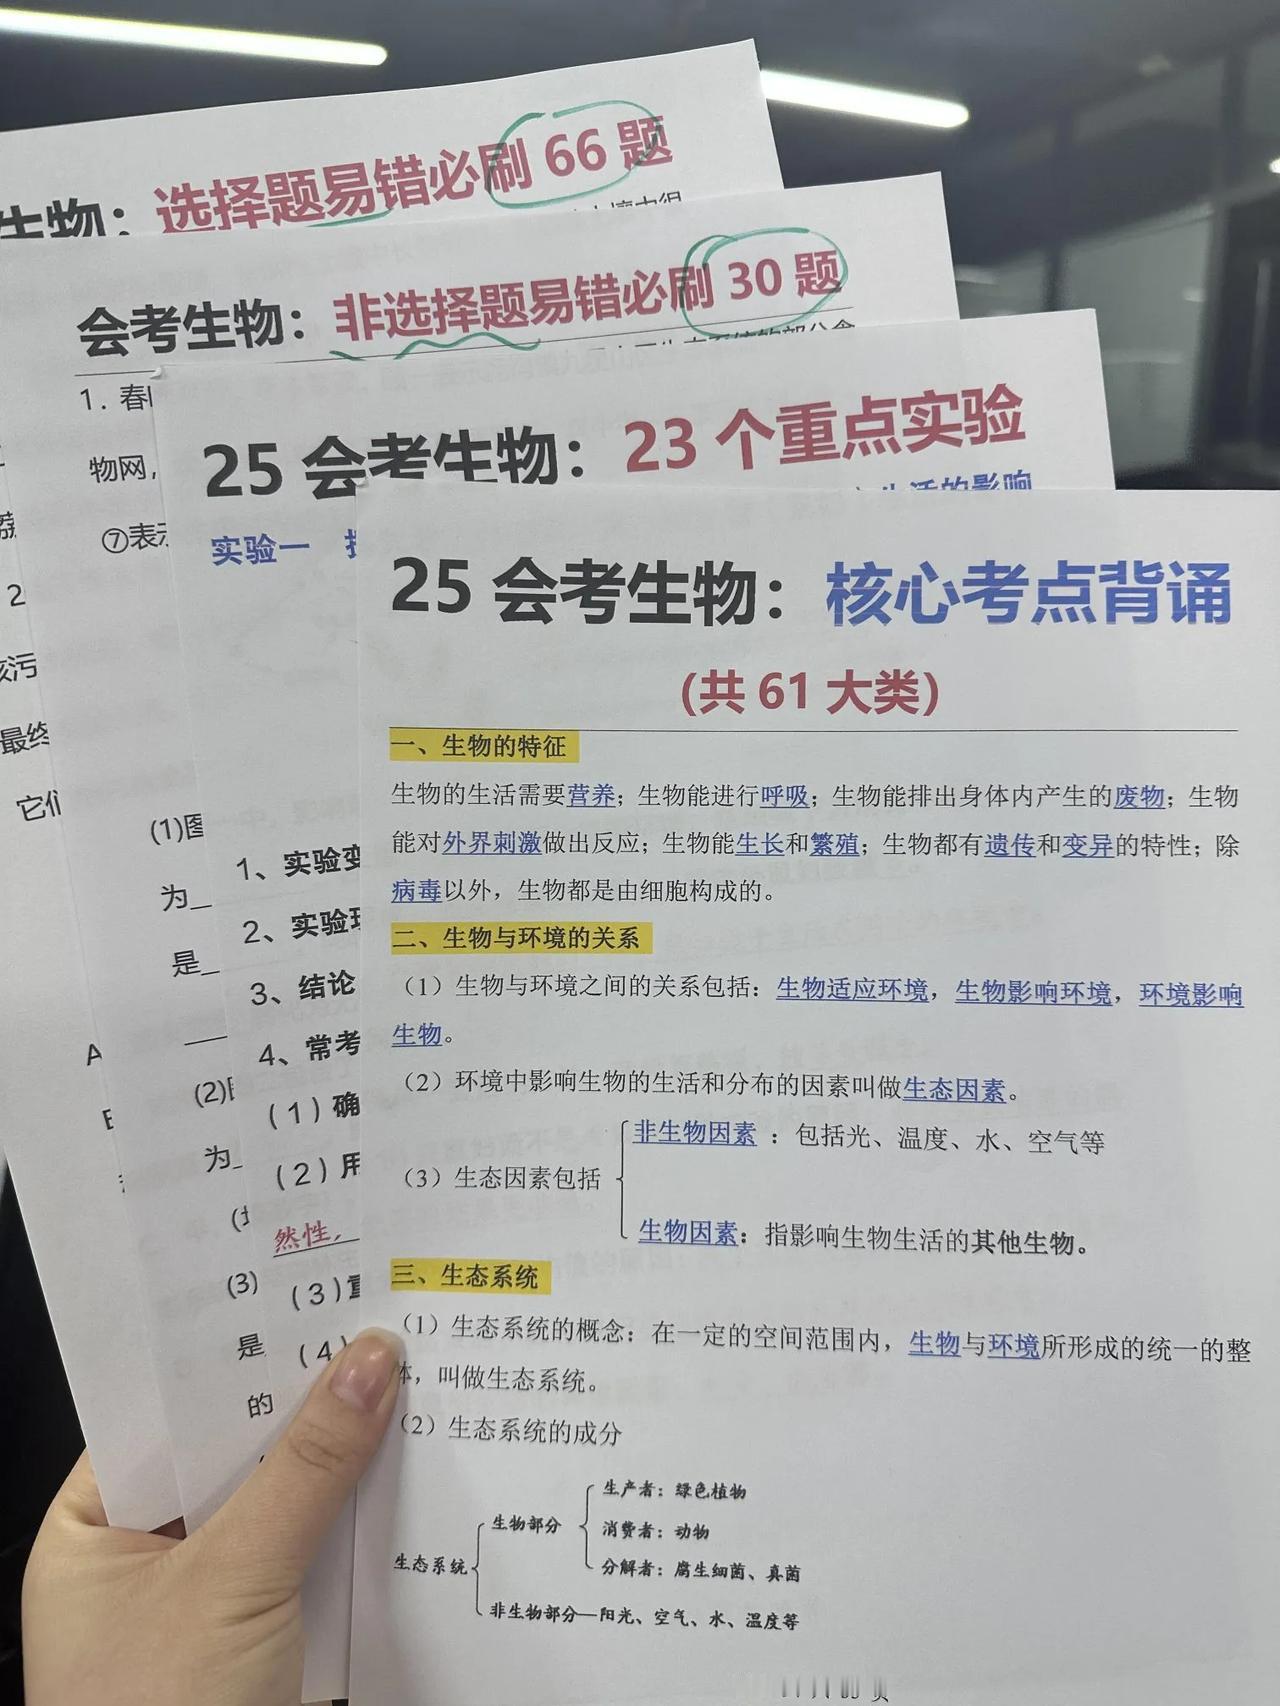 生物：选择题易错必刷 66 题
会考生物：非选择题易错必刷 30 题
1. 春
物网，
⑦表示
25 会考生物：23 个重点实验
生活的影响
实验一
2
核污
最终
它们
(1)图
为
是
A
(2)
为
(3)
是
的
1、实验变
2、实验环
3、结论
4、常考
(1) 确
(2) 用
然性，
(3) 重
(4)
25 会考生物：核心考点背诵
(共 61 大类)
一、生物的特征
生物的生活需要营养；生物能进行呼吸；生物能排出身体内产生的废物；生物
能对外界刺激做出反应；生物能生长和繁殖；生物都有遗传和变异的特性；除
病毒以外，生物都是由细胞构成的。
二、生物与环境的关系
（1）生物与环境之间的关系包括：生物适应环境，生物影响环境，环境影响
生物。
（2）环境中影响生物的生活和分布的因素叫做生态因素。
非生物因素：包括光、温度、水、空气等
（3）生态因素包括
生物因素：指影响生物生活的其他生物。
三、生态系统
（1）生态系统的概念：在一定的空间范围内，生物与环境所形成的统一的整
体，叫做生态系统。
（2）生态系统的成分
生产者：绿色植物
生物部分
消费者：动物
生态系统
分解者：腐生细菌、真菌
非生物部分—阳光、空气、水、温度等